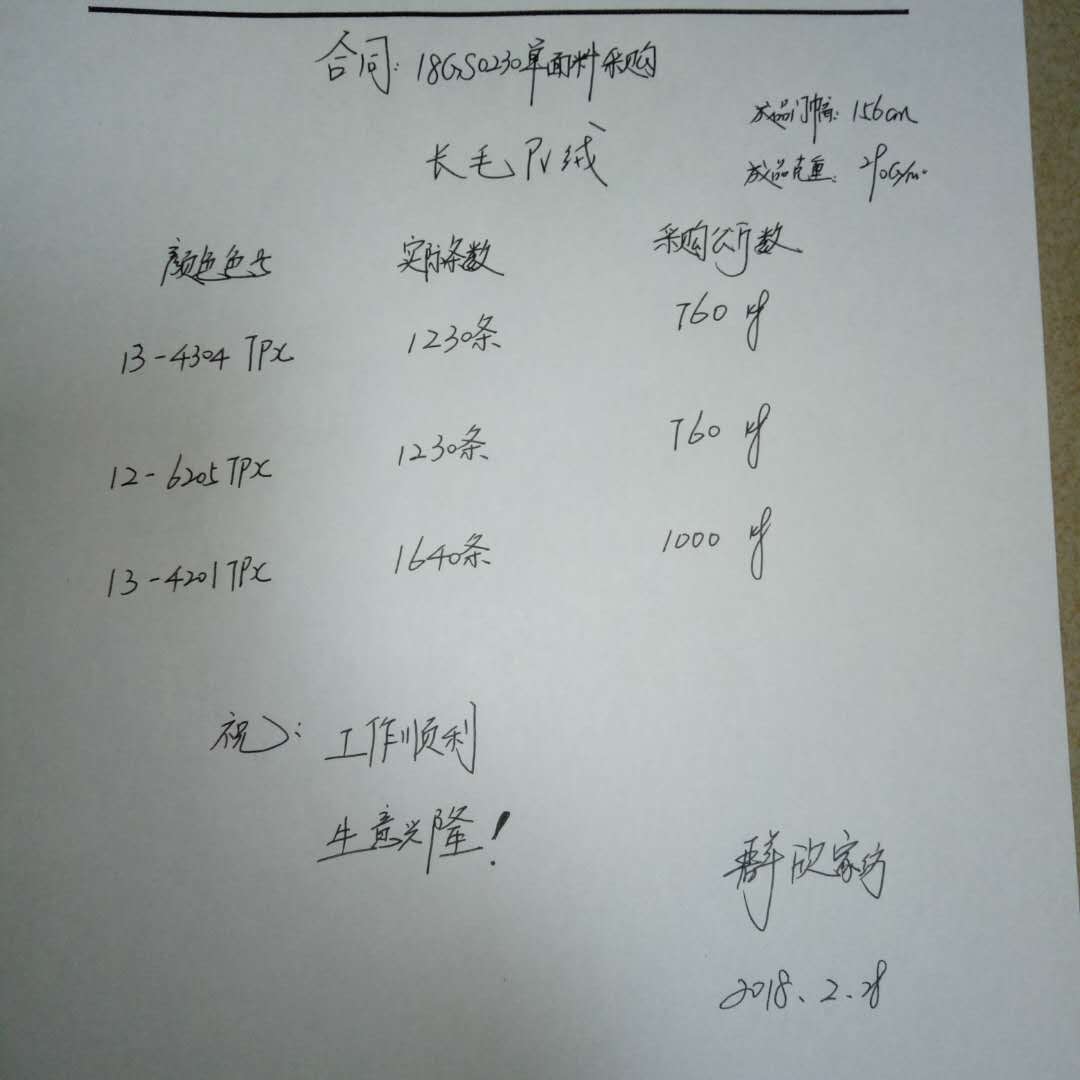 合同: 18GS0230单面料采购
成品门幅: 156cm
长毛PV绒
成品克重: 290G/m²
颜色色号 实际条数 采购公斤数
13-4304 TPX 1230条 760 kg
12-6205 TPX 1230条 760 kg
13-4201 TPX 1640条 1000 kg
祝: 工作顺利
生意兴隆!
群欣家纺
2018.2.28